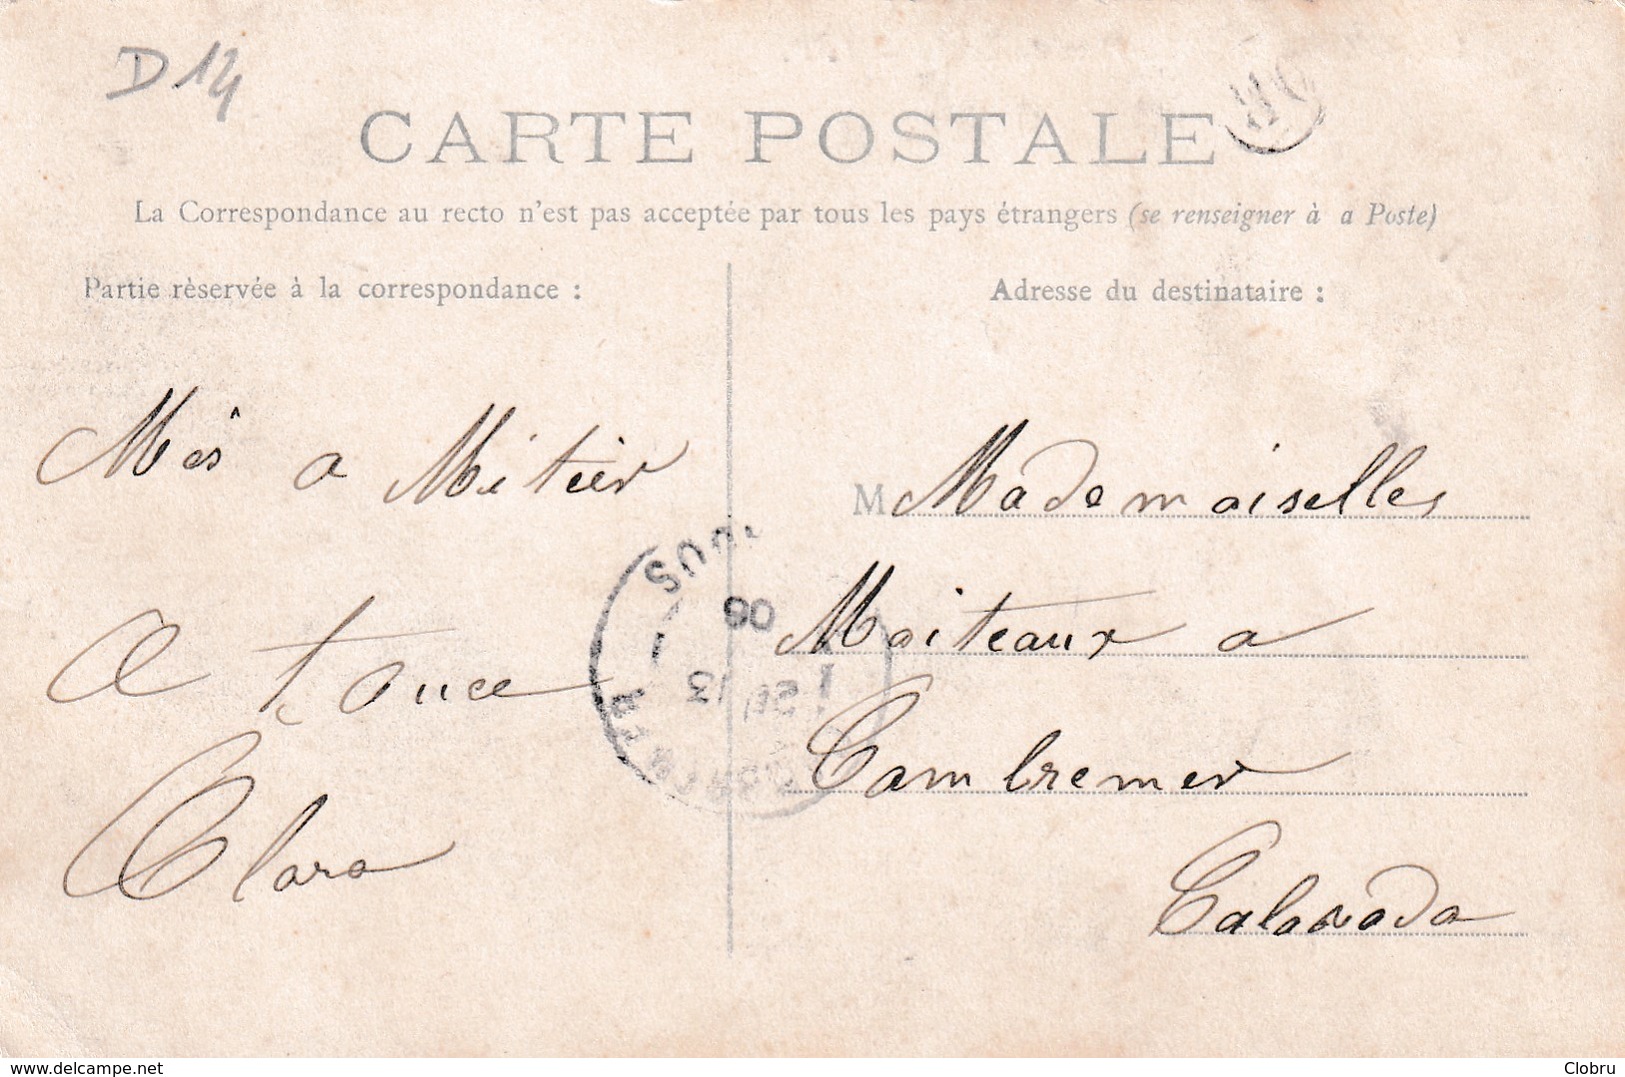 D14
CARTE POSTALE
La Correspondance au recto n'est pas acceptée par tous les pays étrangers (se renseigner à a Poste)
Partie rèservée à la correspondance :
Adresse du destinataire :
a Mitier
a
Clara
M Mademoiselles
Moiteaux a
Cambremer
Calavada
06
13
www.delcampe.net
Clobru